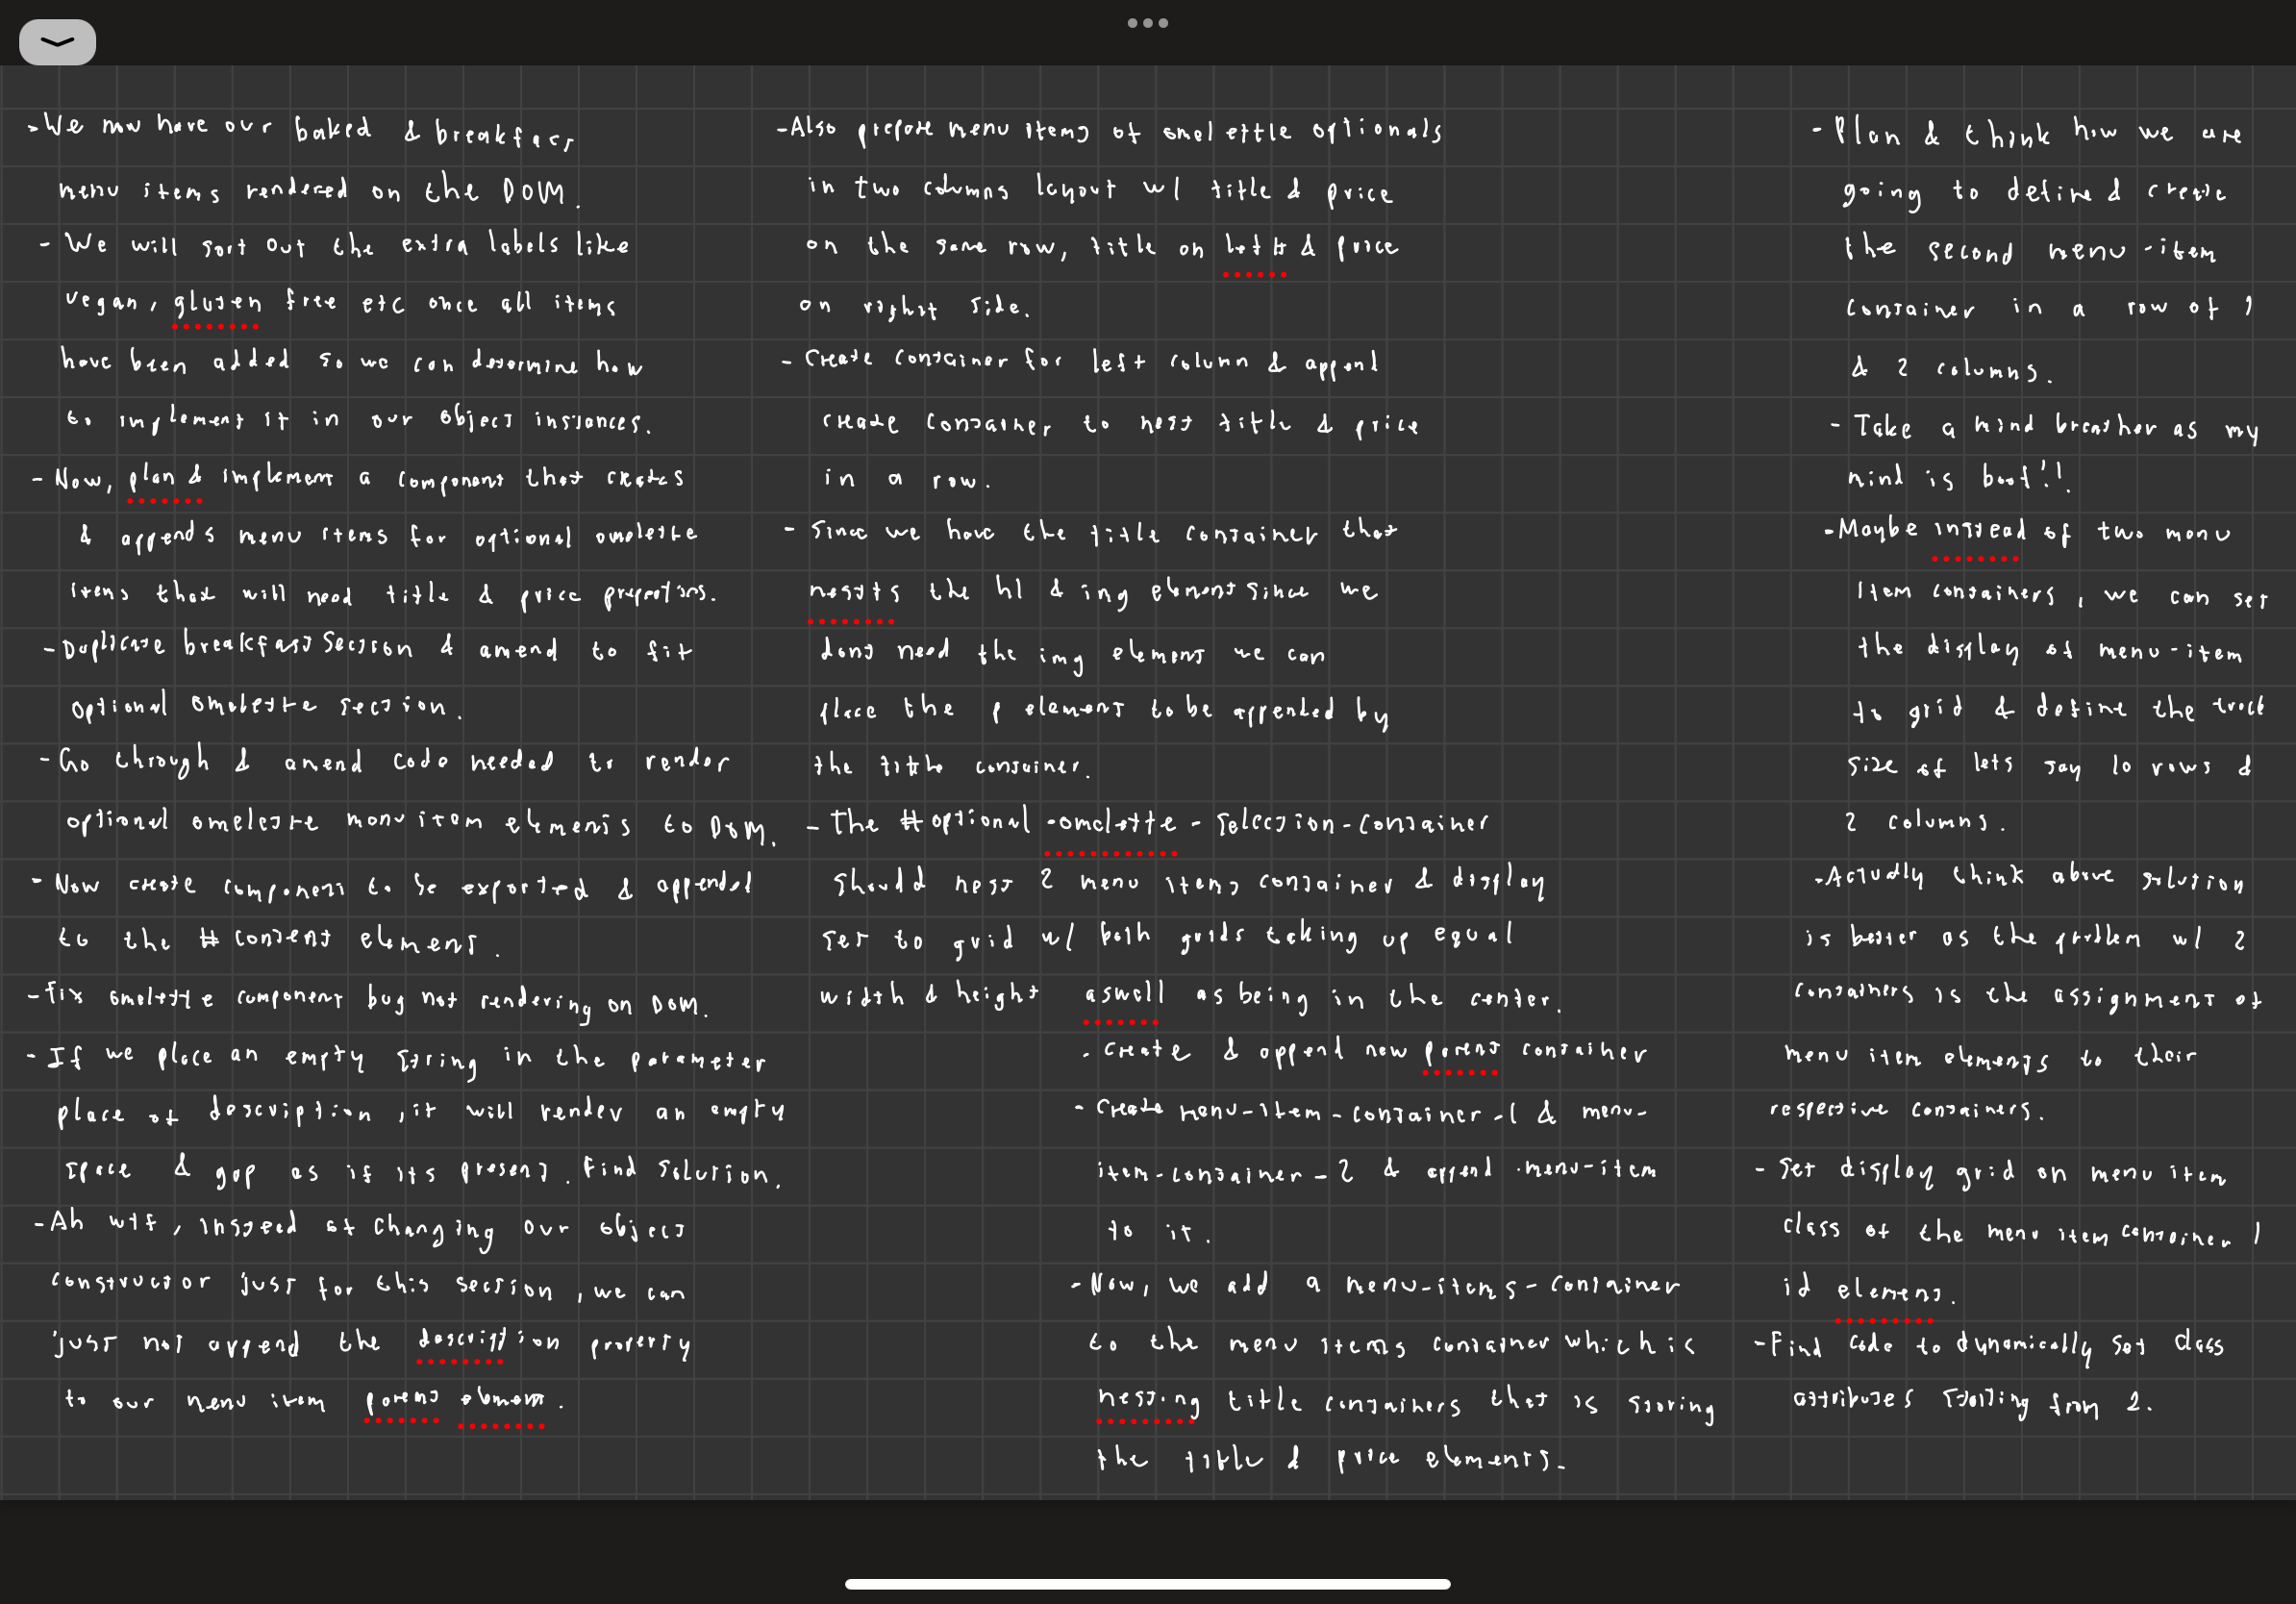 - We now have our baked & breakfast
menu items rendered on the DOM.
- We will sort out the extra labels like
vegan, gluten free etc once all items
have been added so we can determine how
to implement it in our object instances.
- Now, plan & implement a component that creates
& appends menu items for optional omelette
items that will need title & price properties.
- Duplicate breakfast Section & amend to fit
optional omelette section.
- Go through & amend code needed to render
optional omelette menu item elements to DOM.
- Now create component to be exported & appended
to the #content element.
- Fix omelette component bug not rendering on DOM.
- If we place an empty string in the parameter
place of description, it will render an empty
space & gap as if its present. Find solution.
- Ah wtf, instead of changing our object
constructor just for this section, we can
just not append the description property
to our menu item parent element.
- Also prepare menu items of omelettle optionals
in two columns layout w/ title & price
on the same row, title on left & price
on right side.
- Create container for left column & append
create container to nest title & price
in a row.
- Since we have the title container that
nests the h1 & img element since we
dont need the img element we can
place the p element to be appended by
the title container.
- The #optional-omelette-selection-container
should nest 2 menu items container & display
set to grid w/ both grids taking up equal
width & height aswell as being in the center.
- Create & append new parent container
- Create menu-item-container-1 & menu-
item-container-2 & append .menu-item
to it.
- Now, we add a menu-items-container
to the menu items container which is
nesting title containers that is storing
the title & price elements.
- Plan & think how we are
going to define & create
the second menu-item
container in a row of 1
& 2 columns.
- Take a mind breather as my
mind is boot!!
- Maybe instead of two menu
item containers, we can set
the display of menu-item
to grid & define the track
size of lets say 10 rows &
2 columns.
- Actually think above solution
is better as the problem w/ 2
containers is the assignment of
menu item elements to their
respective containers.
- Set display grid on menu item
class of the menu item container 1
id element.
- Find code to dynamically set class
attributes starting from 2.